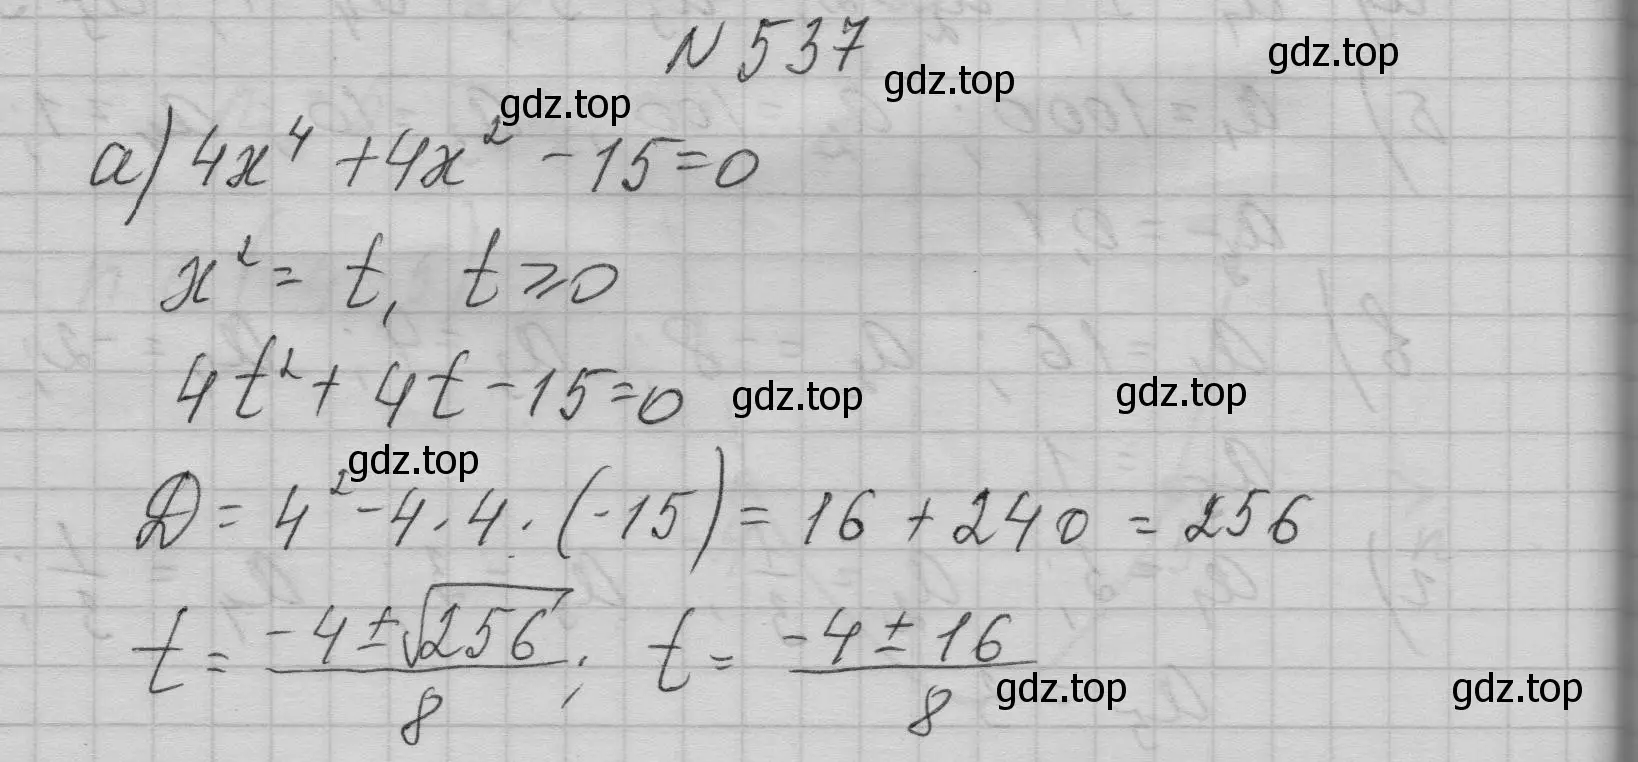 N 537
gdz.top
gdz.top
gdz.top
а) 4x⁴ + 4x² - 15 = 0
x² = t, t ⩾ 0
4t² + 4t - 15 = 0
gdz.top
gdz.top
gdz.top
D = 4² - 4 · 4 · (-15) = 16 + 240 = 256
t = (-4 ± √256)/8 ; t = (-4 ± 16)/8
gdz.top
gdz.top